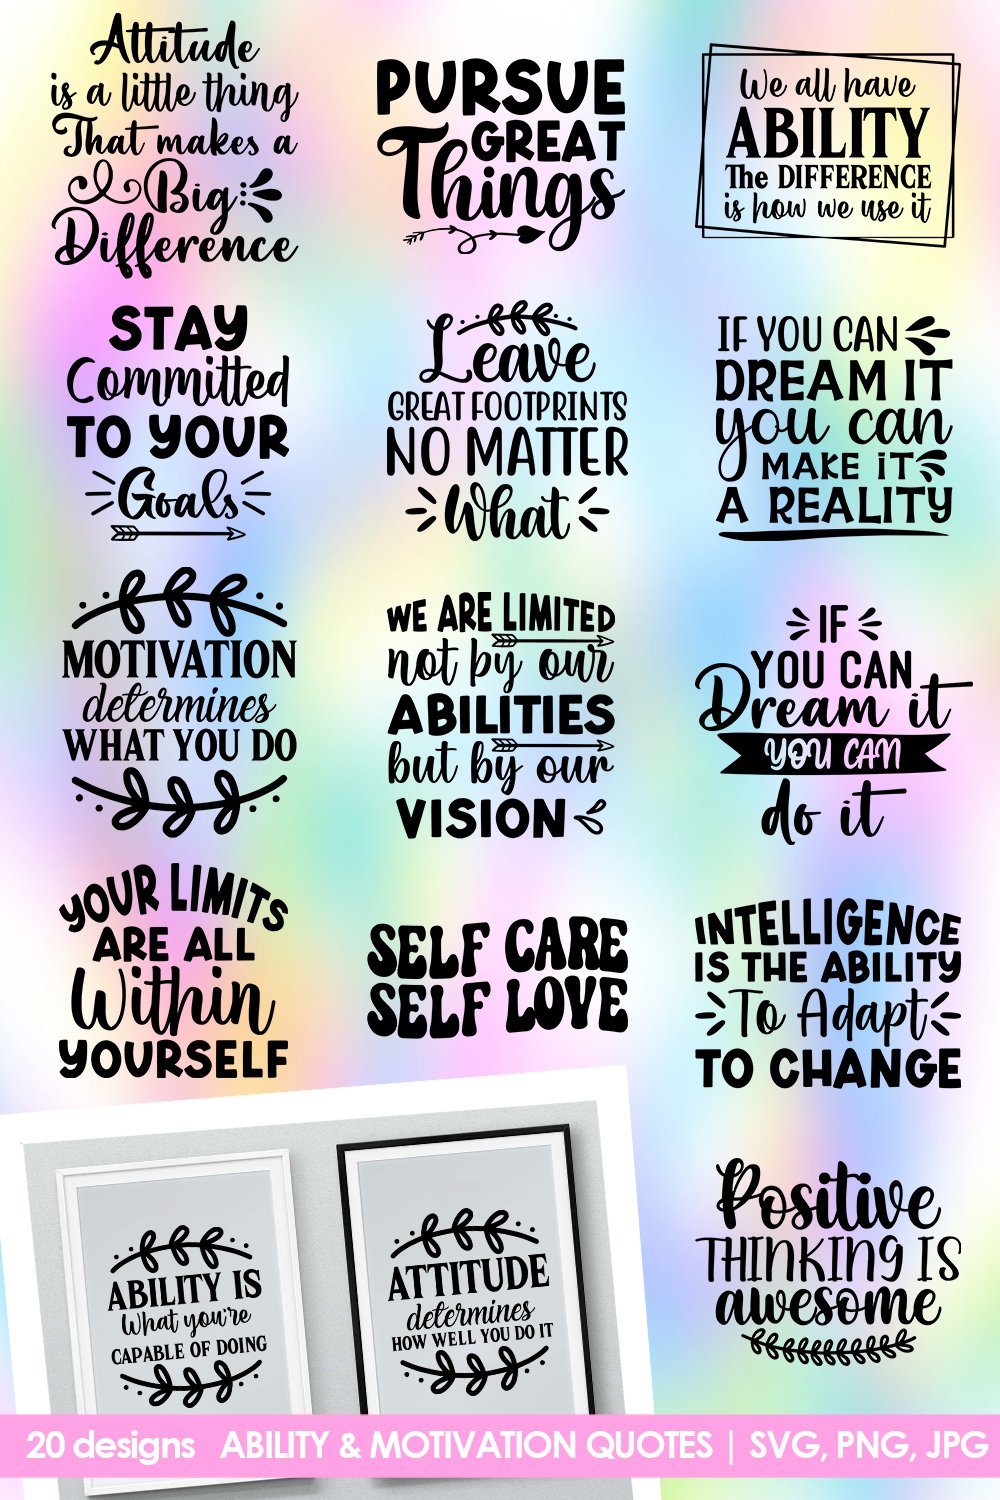 Attitude
is a little thing
That makes a
Big
Difference
PURSUE
GREAT
Things
We all have
ABILITY
The DIFFERENCE
is how we use it
STAY
Committed
TO YOUR
Goals
Leave
GREAT FOOTPRINTS
NO MATTER
What
IF YOU CAN
DREAM IT
you can
MAKE IT
A REALITY
MOTIVATION
determines
WHAT YOU DO
WE ARE LIMITED
not by our
ABILITIES
but by our
VISION
IF
YOU CAN
Dream it
YOU CAN
do it
YOUR LIMITS
ARE ALL
Within
YOURSELF
SELF CARE
SELF LOVE
INTELLIGENCE
IS THE ABILITY
To Adapt
TO CHANGE
ABILITY IS
What you're
CAPABLE OF DOING
ATTITUDE
determines
HOW WELL YOU DO IT
Positive
THINKING IS
awesome
20 designs ABILITY & MOTIVATION QUOTES | SVG, PNG, JPG